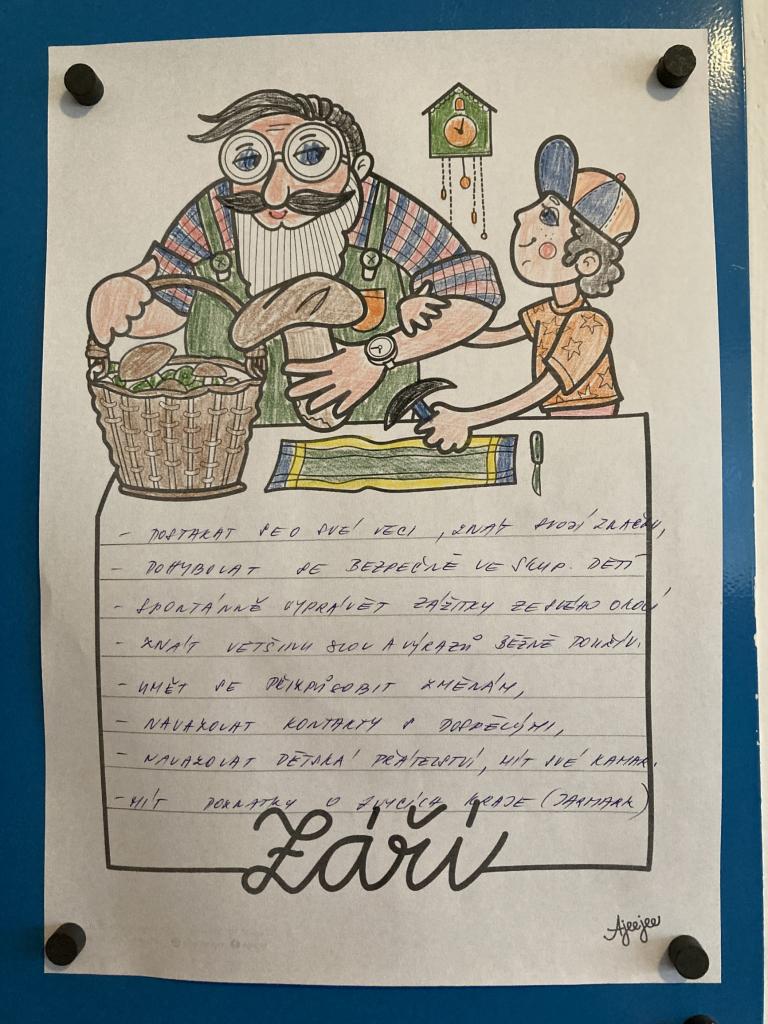 - POSTARAT SE O SVÉ VĚCI, ZNÁT SVOJÍ ZNAČKU,
- POHYBOVAT SE BEZPEČNĚ VE SKUP. DĚTÍ
- SPONTÁNNĚ VYPRÁVĚT ZÁŽITKY ZE SVÉHO OKOLÍ
- ZNÁT VĚTŠINU SLOV A VÝRAZŮ BĚŽNĚ POUŽÍV.
- UMĚT SE PŘIZPŮSOBIT ZMĚNÁM,
- NAVAZOVAT KONTAKTY S DOSPĚLÝMI,
- NAVAZOVAT DĚTSKÁ PŘÁTELSTVÍ, MÍT SVÉ KAMAR.
- MÍT POZNATKY O ZVYCÍCH KRAJE (JARMARK)
Září
Ajeejee